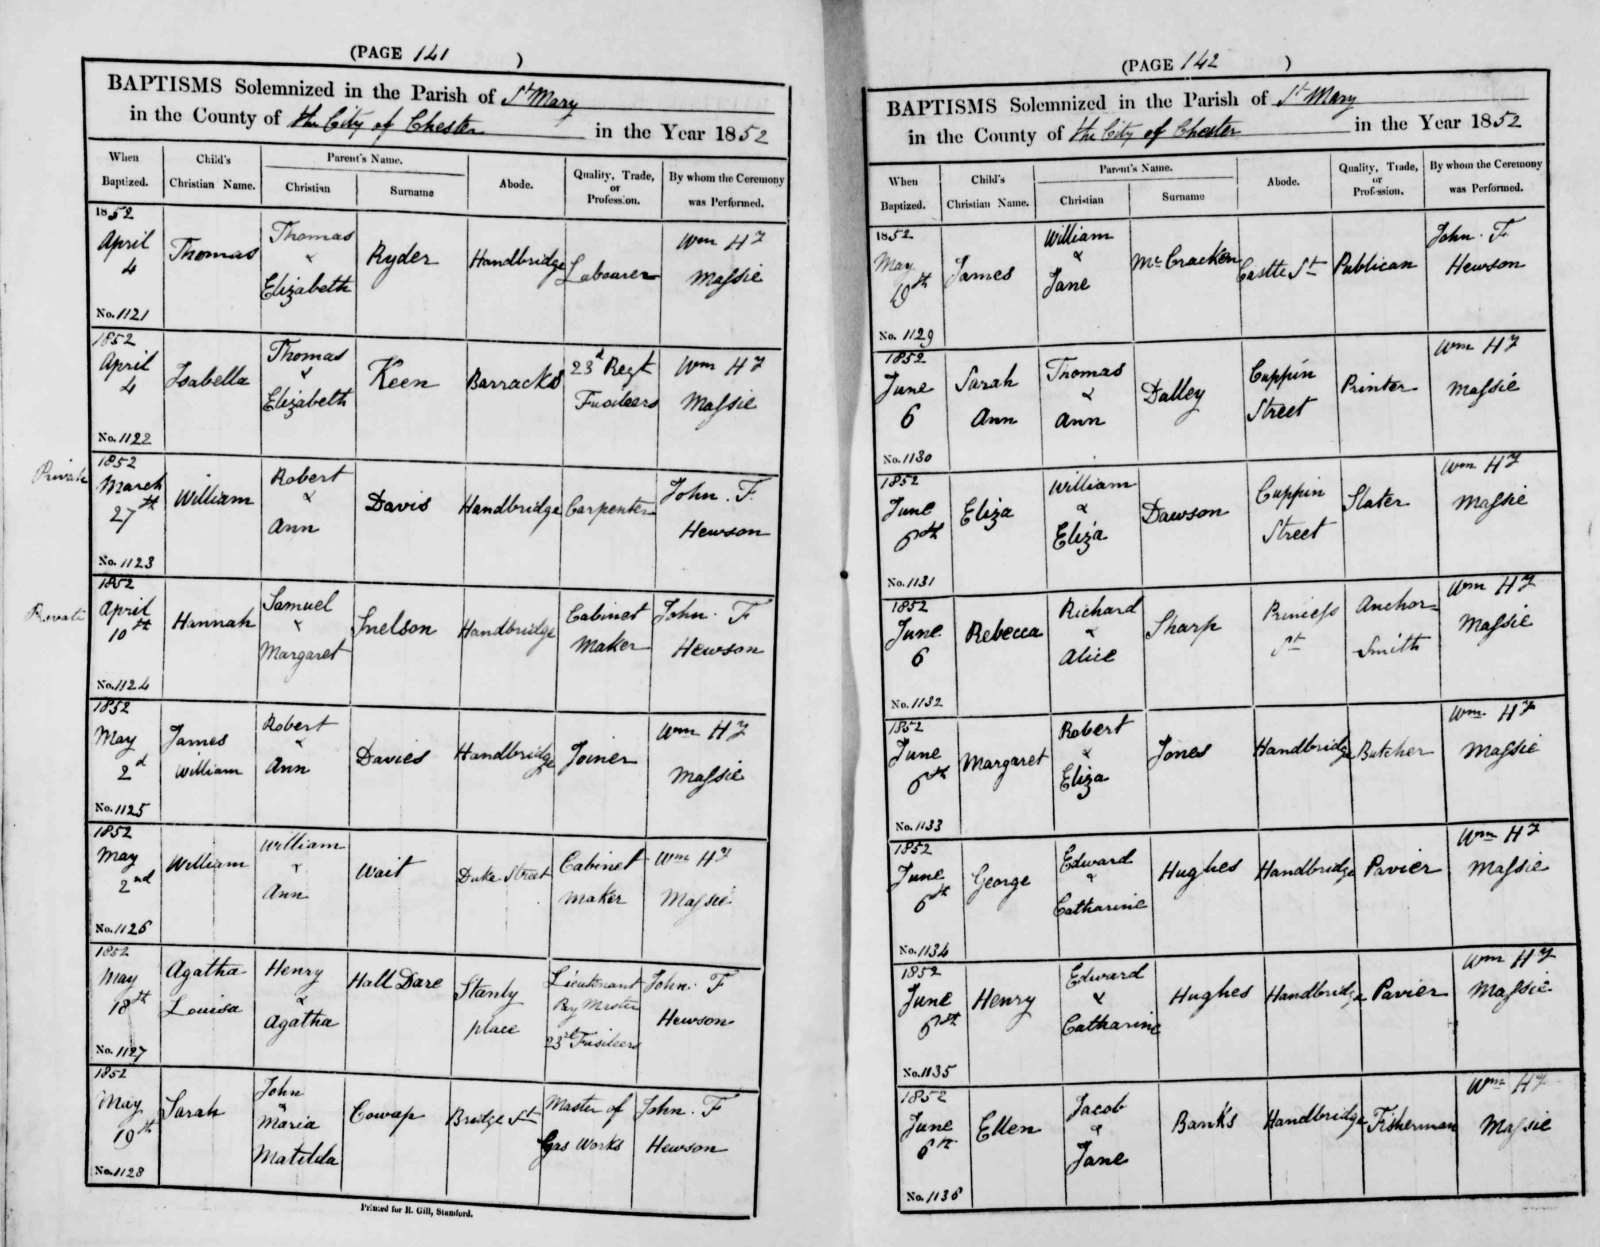 (PAGE 141 )
BAPTISMS Solemnized in the Parish of St Mary
in the County of the City of Chester in the Year 1852
When Baptized. Child's Christian Name. Parent's Name. Christian Surname Abode. Quality, Trade, or Profession. By whom the Ceremony was Performed.
1852
April 4 Thomas Thomas & Elizabeth Ryder Handbridge Labourer Wm H F Massie
No. 1121
1852
April 4 Isabella Thomas & Elizabeth Keen Barracks 23d Regt Fusileers Wm H F Massie
No. 1122
Private
1852
March 27th William Robert & Ann Davis Handbridge Carpenter John. F. Hewson
No. 1123
Private
1852
April 10th Hannah Samuel & Margaret Snelson Handbridge Cabinet Maker John. F Hewson
No. 1124
1852
May 2d James William Robert & Ann Davies Handbridge Joiner Wm H F Massie
No. 1125
1852
May 2nd William William & Ann Wait Duke Street Cabinet Maker Wm H F Massie
No. 1126
1852
May 18th Agatha Louisa Henry & Agatha Hall Dare Stanly place Lieutenant Pay Master 23rd Fusileers John. F Hewson
No. 1127
1852
May 19th Sarah John & Maria Matilda Cowap Bridge St Master of Gas Works John. F Hewson
No. 1128
Printed for R. Gill, Stamford.
(PAGE 142 )
BAPTISMS Solemnized in the Parish of St Mary
in the County of the City of Chester in the Year 1852
When Baptized. Child's Christian Name. Parent's Name. Christian Surname Abode. Quality, Trade, or Profession. By whom the Ceremony was Performed.
1852
May James William & Jane McCracken Castle St Publican John. F Hewson
No. 1129
1852
June 6 Sarah Ann Thomas & Ann Dalley Cuppin Street Printer Wm H F Massie
No. 1130
1852
June 6th Eliza William & Eliza Dawson Cuppin Street Slater Wm H F Massie
No. 1131
1852
June 6 Rebecca Richard & Alice Sharp Princess St Anchor Smith Wm H F Massie
No. 1132
1852
June 6th Margaret Robert & Eliza Jones Handbridge Butcher Wm H F Massie
No. 1133
1852
June 6th George Edward & Catharine Hughes Handbridge Pavier Wm H F Massie
No. 1134
1852
June 6th Henry Edward & Catharine Hughes Handbridge Pavier Wm H F Massie
No. 1135
1852
June 6th Ellen Jacob & Jane Banks Handbridge Fisherman Wm H F Massie
No. 1136